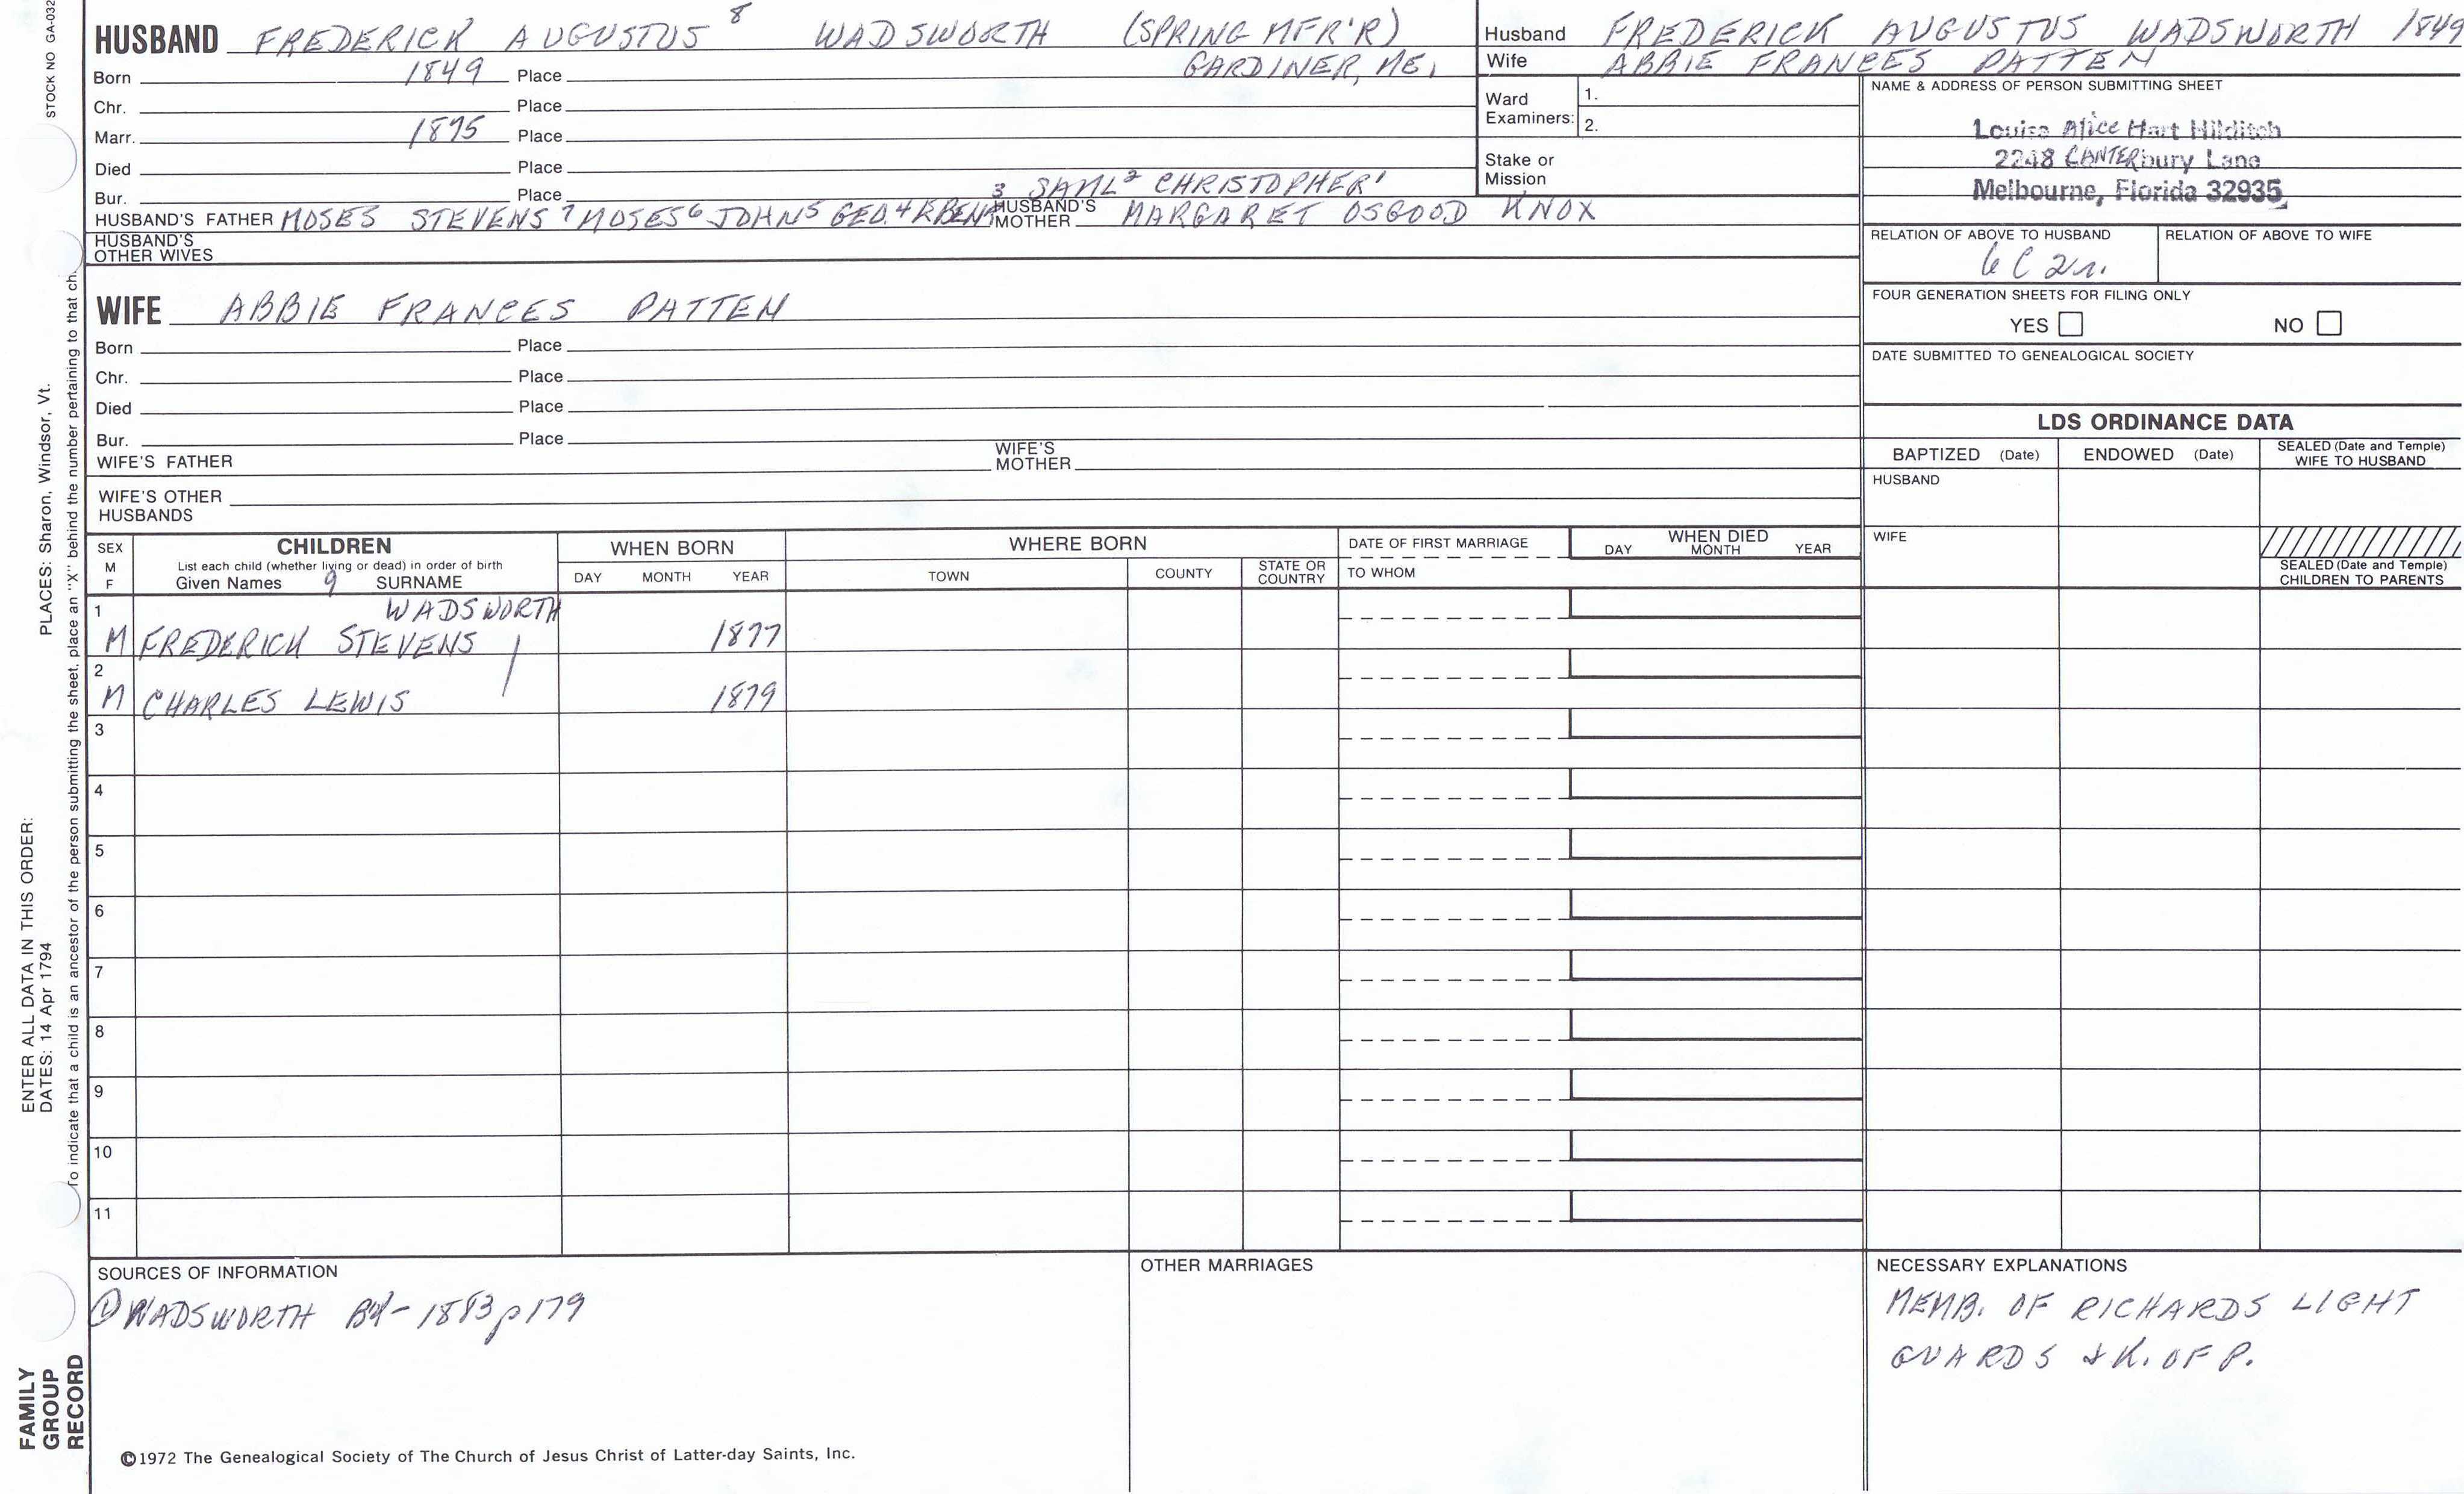 STOCK NO GA-032
HUSBAND FREDERICK AUGUSTUS 8 WADSWORTH (SPRING MFR'R)
Born 1849 Place GARDINER, ME.
Chr. Place
Marr. 1875 Place
Died Place
Bur. Place 3 SAML 2 CHRISTOPHER 1
HUSBAND'S FATHER MOSES STEVENS 7 MOSES 6 JOHN 5 GEO. 4 HUSBAND'S MOTHER MARGARET OSGOOD KNOX
HUSBAND'S OTHER WIVES
WIFE ABBIE FRANCES PATTEN
Born Place
Chr. Place
Died Place
Bur. Place
WIFE'S FATHER WIFE'S MOTHER
WIFE'S OTHER HUSBANDS
Husband FREDERICK AUGUSTUS WADSWORTH 1849
Wife ABBIE FRANCES PATTEN
Ward Examiners: 1.
2.
Stake or Mission
NAME & ADDRESS OF PERSON SUBMITTING SHEET
Louise Alice Hart Hilditch
2248 CANTERbury Lane
Melbourne, Florida 32935
RELATION OF ABOVE TO HUSBAND RELATION OF ABOVE TO WIFE
6C2r.
FOUR GENERATION SHEETS FOR FILING ONLY
YES NO
DATE SUBMITTED TO GENEALOGICAL SOCIETY
LDS ORDINANCE DATA
BAPTIZED (Date) ENDOWED (Date) SEALED (Date and Temple) WIFE TO HUSBAND
HUSBAND
WIFE
SEALED (Date and Temple) CHILDREN TO PARENTS
SEX M F
CHILDREN
List each child (whether living or dead) in order of birth
Given Names 9 SURNAME
WHEN BORN
DAY MONTH YEAR
WHERE BORN
TOWN COUNTY STATE OR COUNTRY
DATE OF FIRST MARRIAGE
TO WHOM
WHEN DIED
DAY MONTH YEAR
1 WADSWORTH
M FREDERICK STEVENS 1877
2
M CHARLES LEWIS 1879
3
4
5
6
7
8
9
10
11
SOURCES OF INFORMATION
① WADSWORTH BK - 1883 p179
OTHER MARRIAGES
NECESSARY EXPLANATIONS
MEMB. OF RICHARDS LIGHT
GUARDS & K. OF P.
©1972 The Genealogical Society of The Church of Jesus Christ of Latter-day Saints, Inc.
PLACES: Sharon, Windsor, Vt.
ENTER ALL DATA IN THIS ORDER:
DATES: 14 Apr 1794
To indicate that a child is an ancestor of the person submitting the sheet, place an "X" behind the number pertaining to that ch
FAMILY
GROUP
RECORD